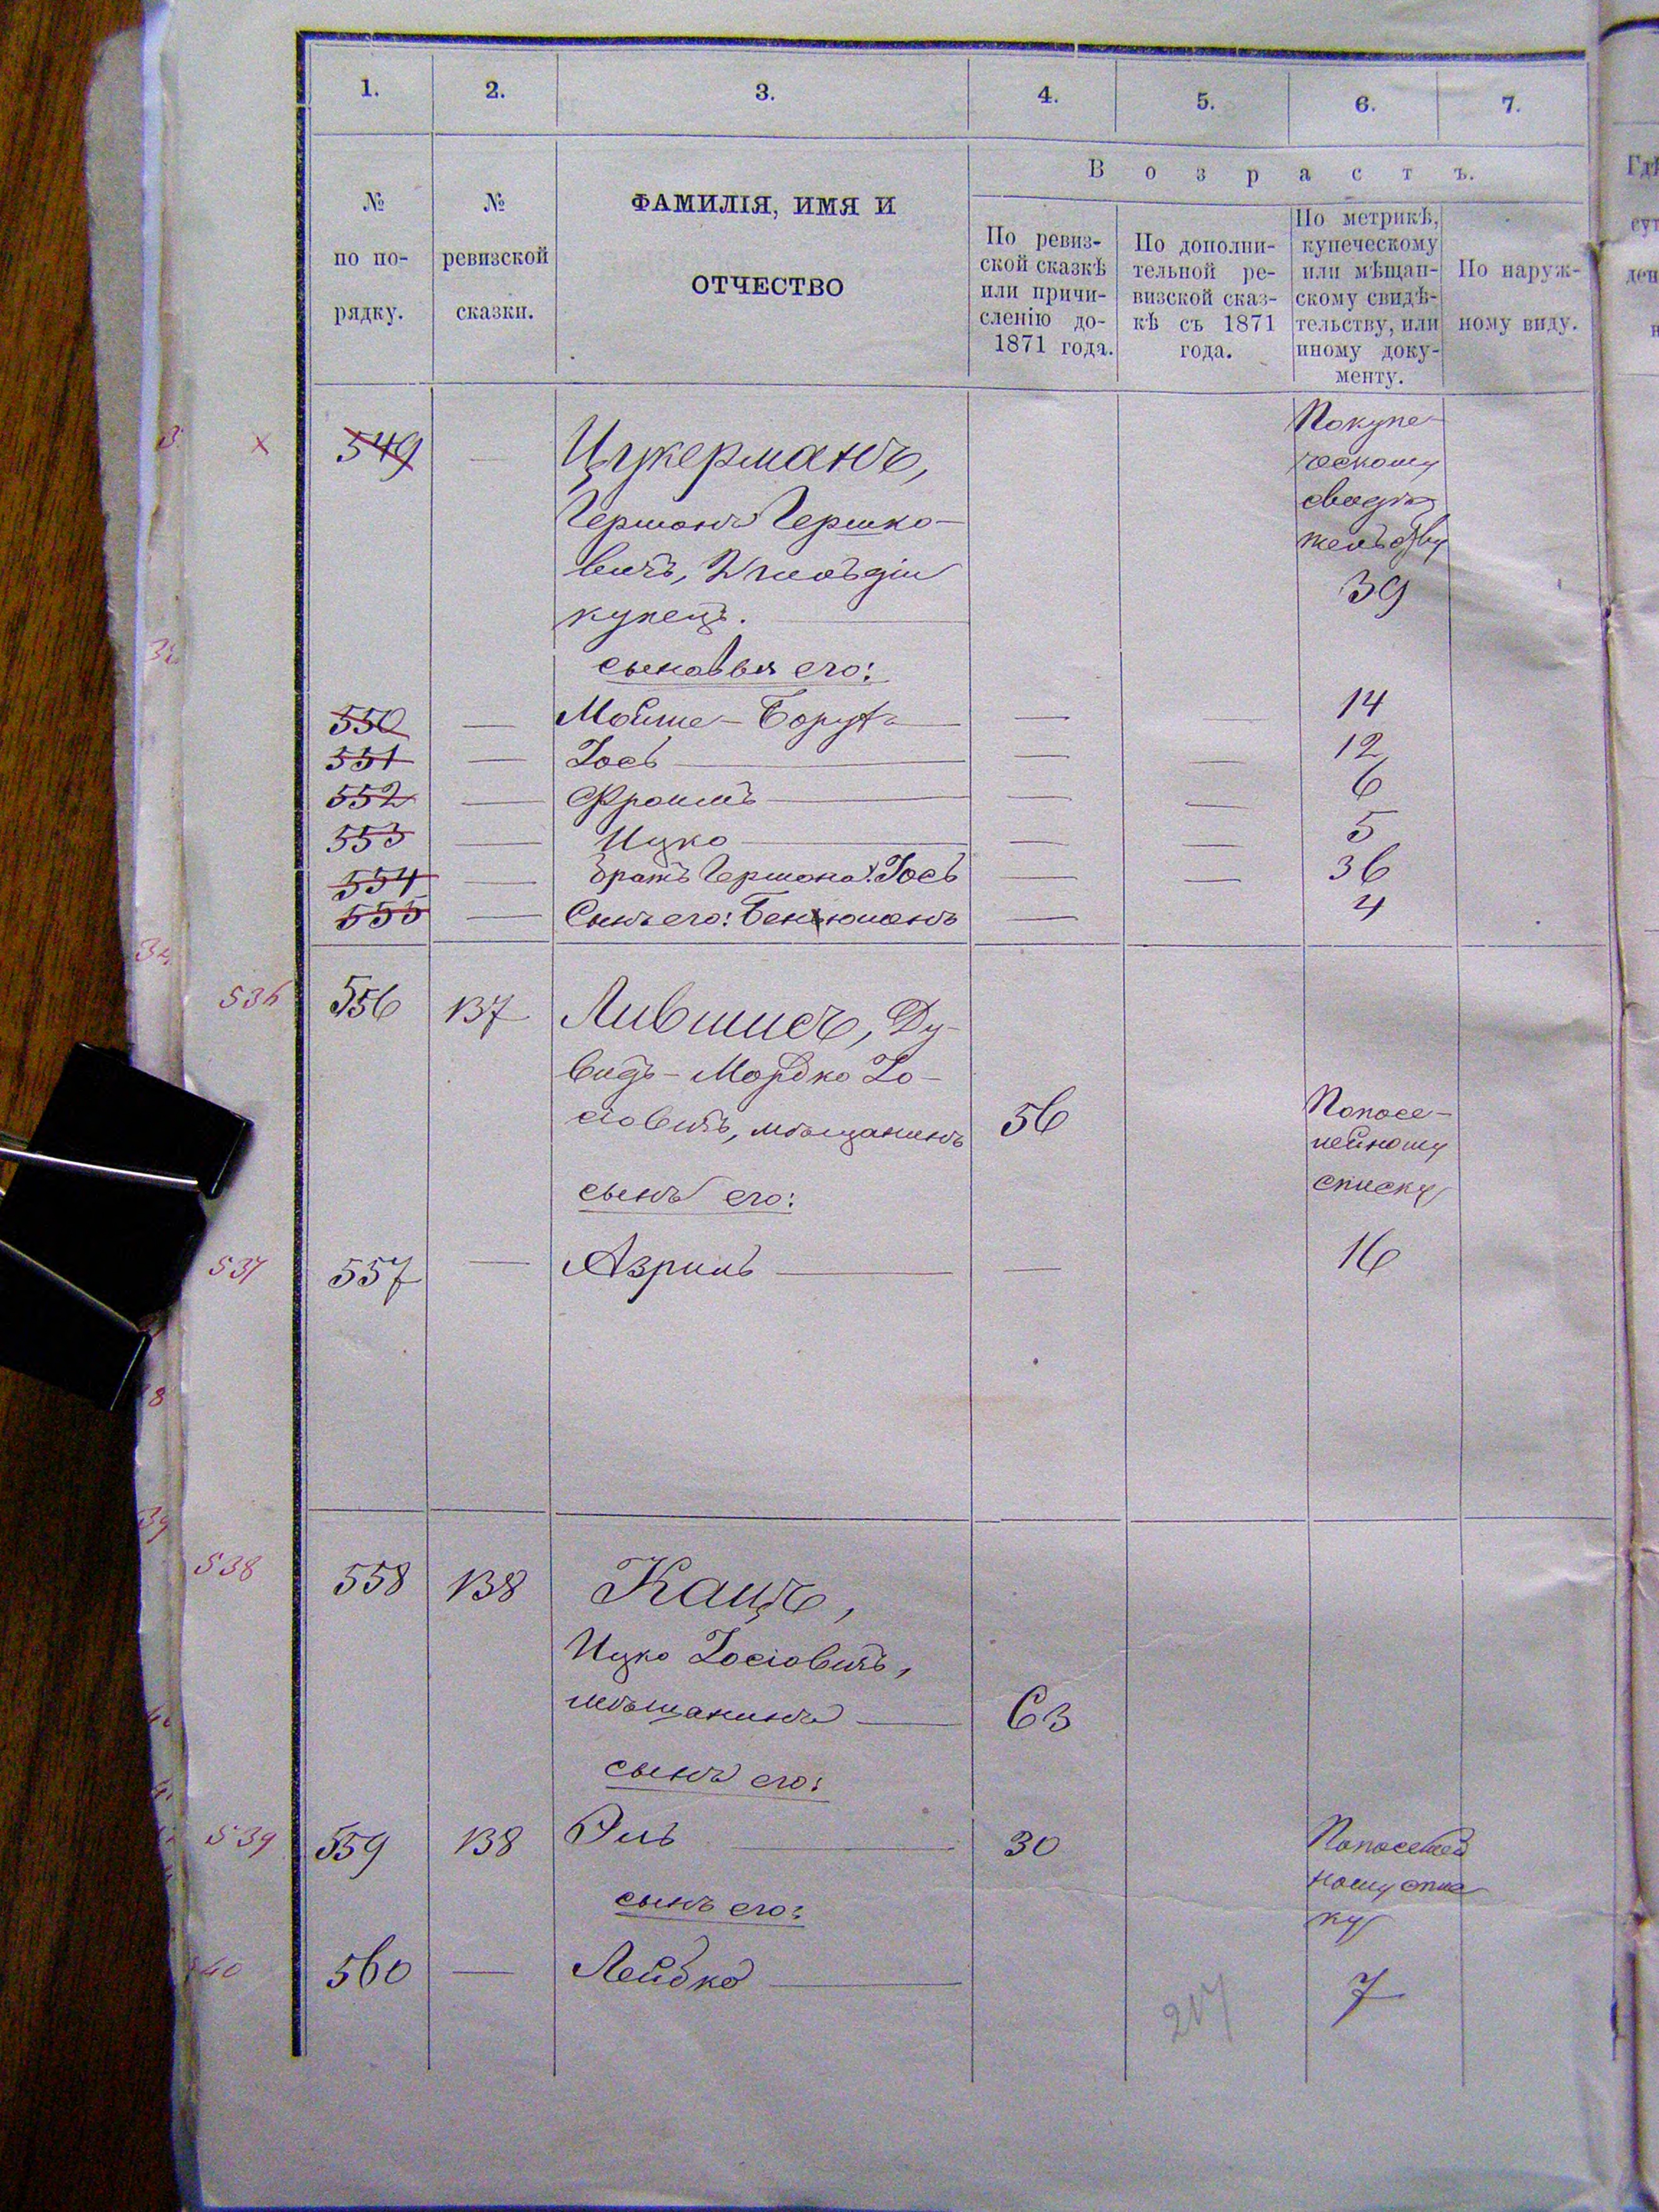 1. 2. 3. 4. 5. 6. 7.
№ по по-рядку.
№ ревизской сказки.
ФАМИЛІЯ, ИМЯ И
ОТЧЕСТВО
Возрастъ.
По ревиз-
ской сказкѣ
или причи-
сленію до-
1871 года.
По дополни-
тельной ре-
визской сказ-
кѣ съ 1871
года.
По метрикѣ,
купеческому
или мѣщан-
скому свидѣ-
тельству, или
иному доку-
менту.
По наруж-
ному виду.
Гдѣ
549 — Цукерманъ, Покупе-
ческому
свидѣ
тельству
Гершонъ Гершко-
вичъ, 2 гильдіи 39
купецъ.
сыновья его:
550 — Мойше-Борухъ — 14
551 — Іось — — 12
552 — Фроимъ — — 6
553 — Ицко — — 5
554 — Братъ Гершона: Іось — — 36
555 — Сынъ его: Беньюминъ — 4
536 556 137 Лившисъ, Ду-
видъ-Мордко Іо-
сіовичъ, мѣщанинъ 56
Попосе-
мейному
списку
сынъ его:
537 557 — Азриль — 16
538 558 138 Кацъ,
Ицко Іосіовичъ,
мѣщанинъ — 63
сынъ его:
539 559 138 Эль 30 Попосемей
ному спис
ку
сынъ его:
540 560 — Лейбко 7
217